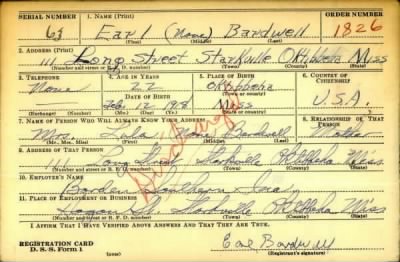 SERIAL NUMBER 1. NAME (Print) ORDER NUMBER
63 Earl (None) Bardwell 1826
(First) (Middle) (Last)
2. ADDRESS (Print)
111 Long Street Starkville Oktibbeha Miss
(Number and street or R. F. D. number) (Town) (County) (State)
3. TELEPHONE 4. AGE IN YEARS 5. PLACE OF BIRTH 6. COUNTRY OF CITIZENSHIP
None 22 Oktibbeha
DATE OF BIRTH (Town or county)
— Feb. 12 1918 Miss U.S.A.
(Exchange) (Number) (Mo.) (Day) (Yr.) (State or country)
7. NAME OF PERSON WHO WILL ALWAYS KNOW YOUR ADDRESS 8. RELATIONSHIP OF THAT PERSON
Mrs. Lula None Bardwell Mother
(Mr., Mrs., Miss) (First) (Middle) (Last)
9. ADDRESS OF THAT PERSON
111 Long Street Starkville Oktibbeha Miss
(Number and street or R. F. D. number) (Town) (County) (State)
10. EMPLOYER'S NAME
Borden Southern
11. PLACE OF EMPLOYMENT OR BUSINESS
St. Starkville Oktibbeha Miss
(Number and street or R. F. D. number) (Town) (County) (State)
I AFFIRM THAT I HAVE VERIFIED ABOVE ANSWERS AND THAT THEY ARE TRUE.
REGISTRATION CARD
D. S. S. Form 1 Earl Bardwell
(Registrant's signature)